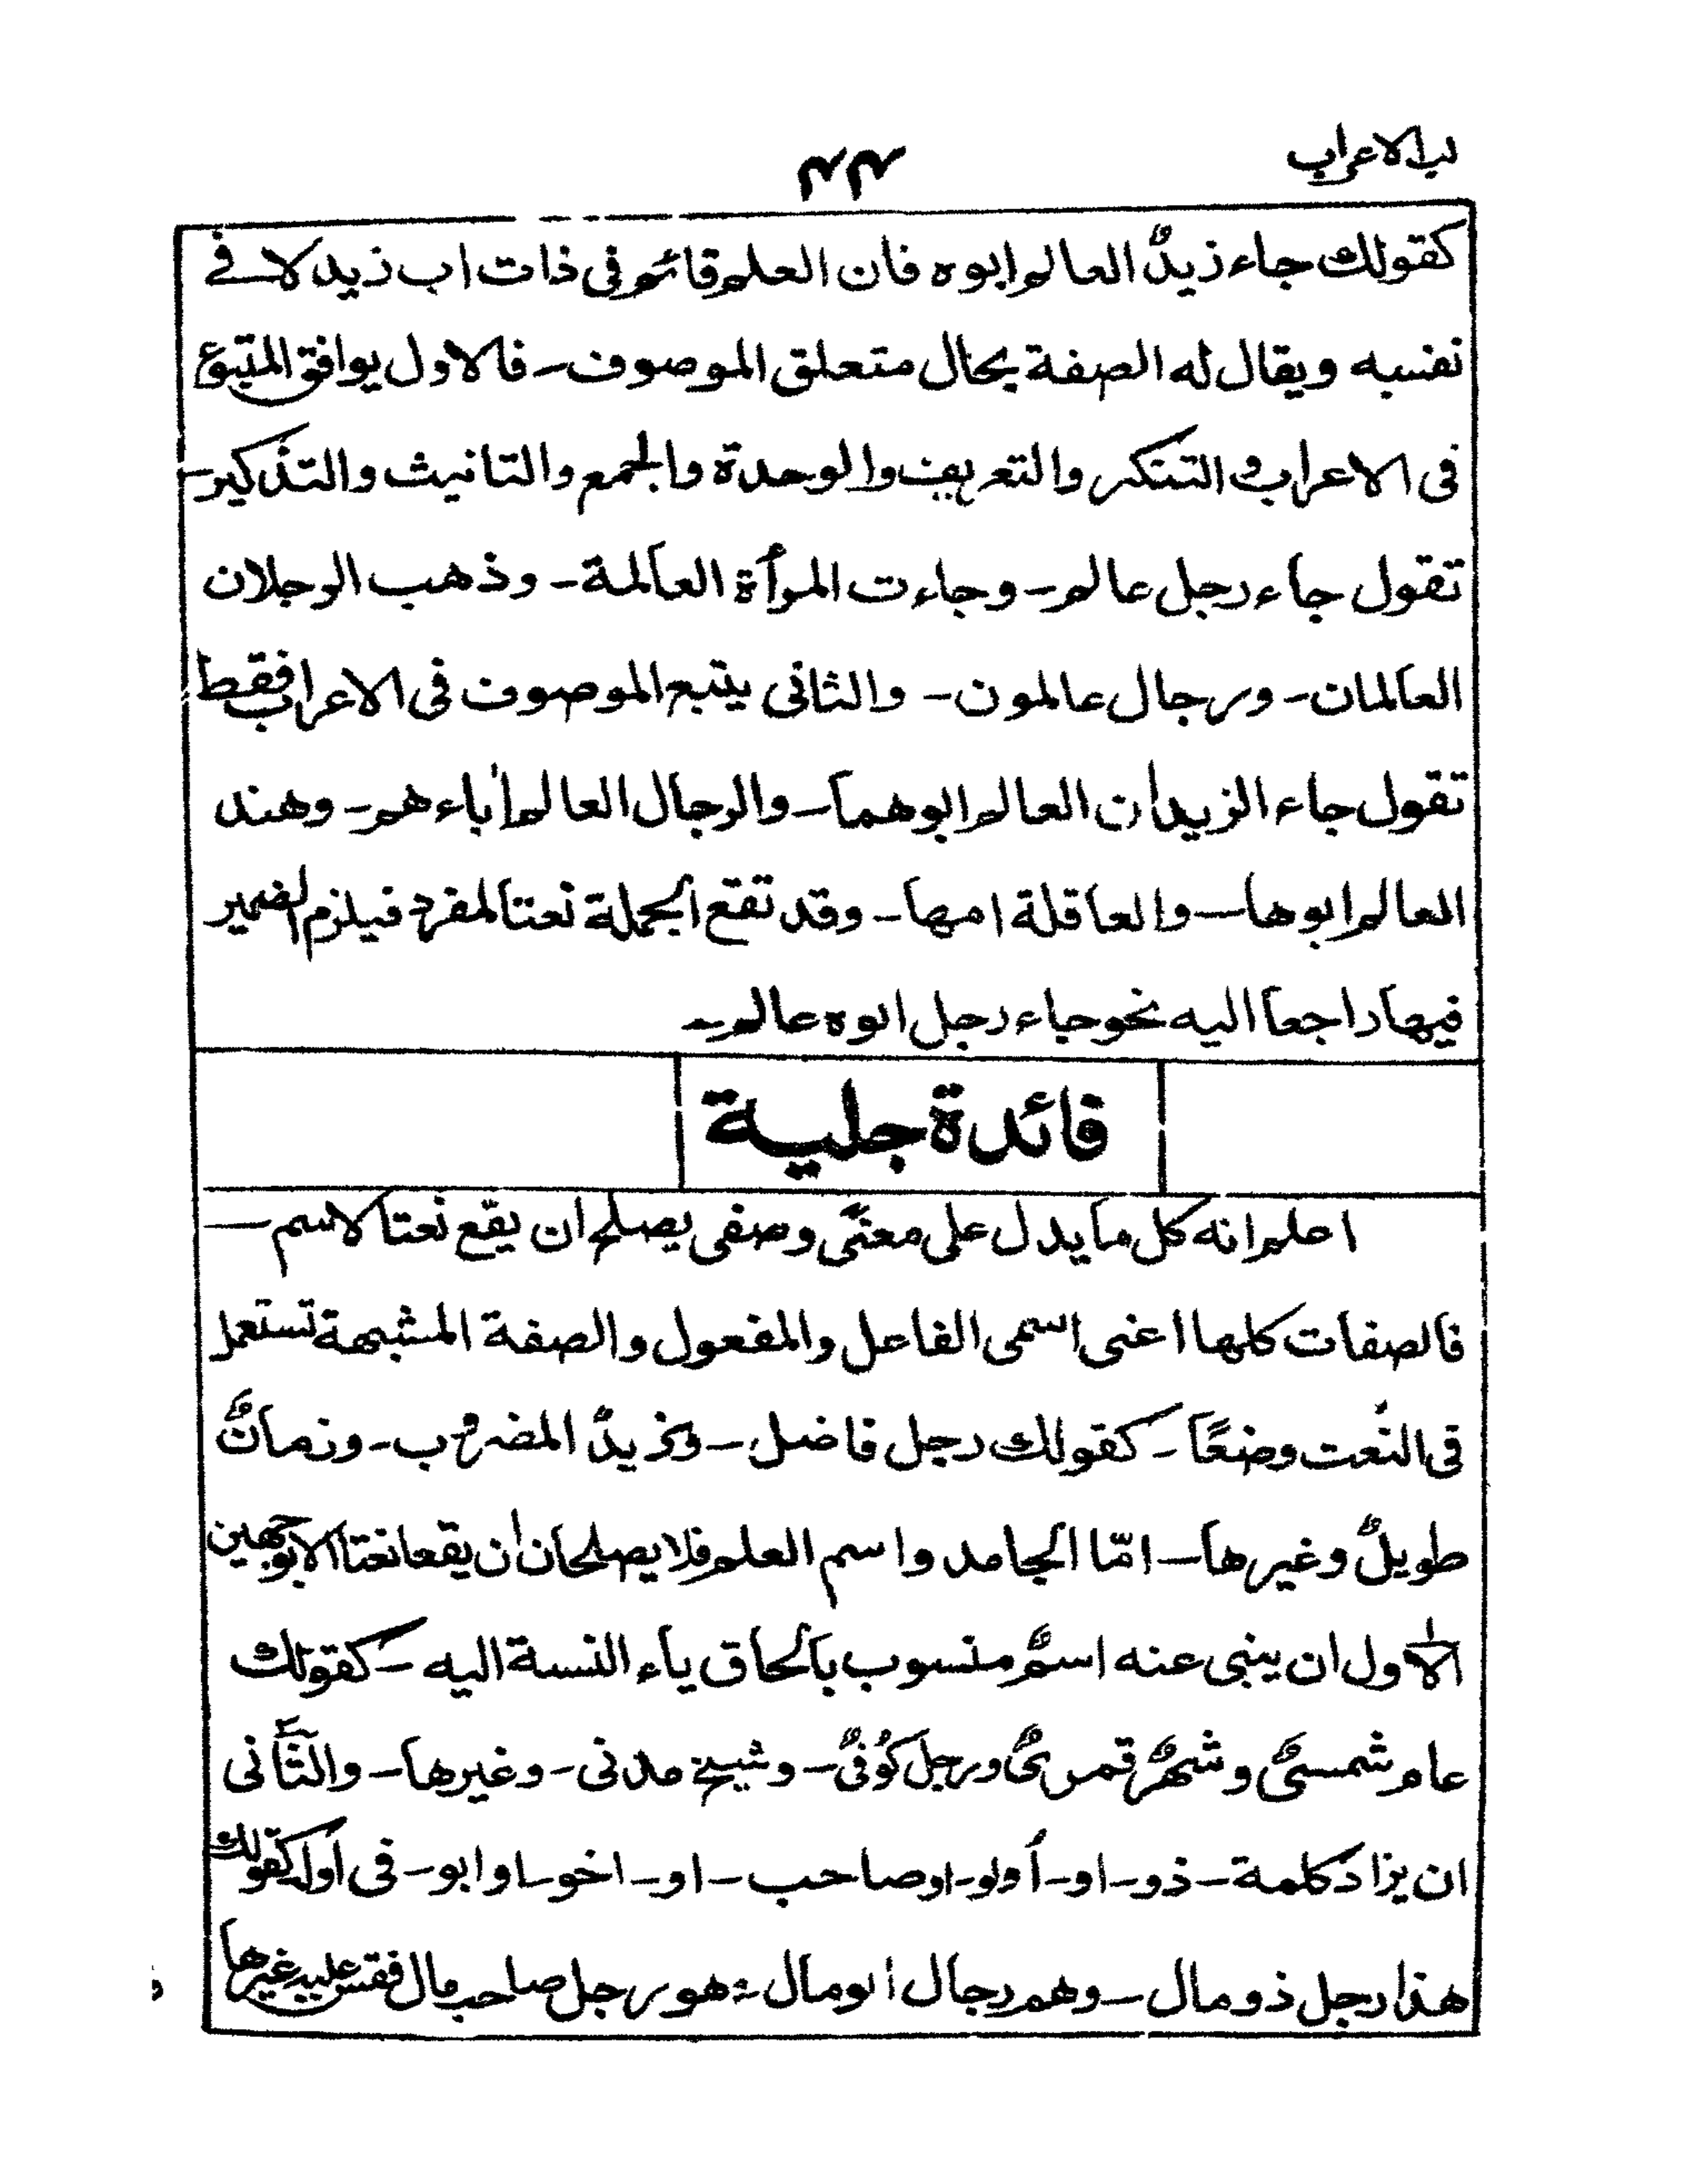 لب الاعراب
۴۴
كقولك جاء زيدٌ العالم ابوه فان العلم قائم فى ذات اب زيد لا فے
نفسه ويقال له الصفة بحال متعلق الموصوف - فالاول يوافق المتبوع
فى الاعراب والتنكر والتعريف والوحدة والجمع والتانيث والتذكير -
تقول جاء رجل عالم - وجاءت المرأة العالمة - وذهب الرجلان
العالمان - ورجال عالمون - والثانى يتبع الموصوف فى الاعراب فقط
تقول جاء الزيدان العالم ابوهما - والرجال العالم اٰباءهم - وهند
العالم ابوها - والعاقلة امها - وقد تقع الجملة نعتا لمفرد فيلزم الضمير
فيها راجعا اليه نحو جاء رجل ابوه عالم -
فائدة جلية
اعلم انه كل ما يدل على معنًى وصفى يصلح ان يقع نعتا لاسم -
فالصفات كلها اعنى اسمى الفاعل والمفعول والصفة المشبهة تستعمل
فى النعت وضعًا - كقولك رجل فاضل - وزيدٌ المضروب - وزمانٌ
طويلٌ وغيرها - امّا الجامد واسم العلم فلا يصلحان ان يقعا نعتا الا بوجهين
الاول ان يبنى عنه اسمٌ منسوب بالحاق ياء النسبة اليه - كقولك
عام شمسىٌ وشهرٌ قمرىٌ ورجل كُوفىٌ - وشيخ مدنى - وغيرها - والثَّانى
ان يزاد كلمة - ذو - او - أولو - او صاحب - او - اخو - او ابو - فى اوله كقولك
هذا رجل ذو مال - وهم رجال الو مال - هو رجل صاحب مال فقس عليه غيرها